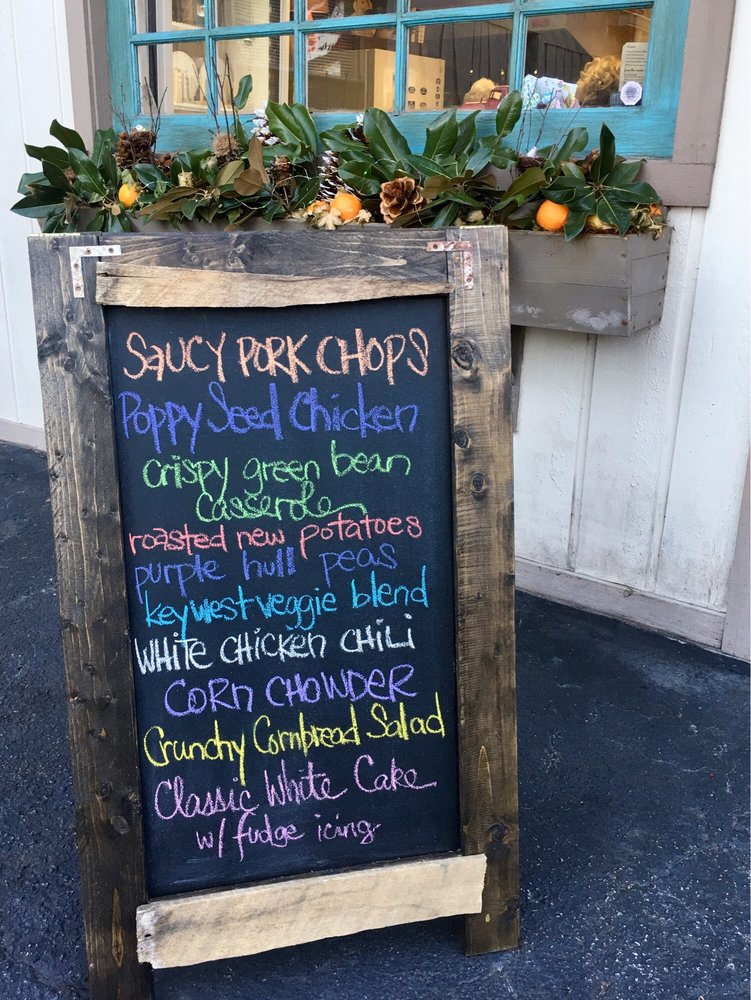 SAUCY PORK CHOPS
Poppy Seed Chicken
crispy green bean
casserole
roasted new potatoes
purple hull peas
key west veggie blend
WHITE CHICKEN CHILI
CORN CHOWDER
Crunchy Cornbread Salad
Classic White Cake
w/ fudge icing